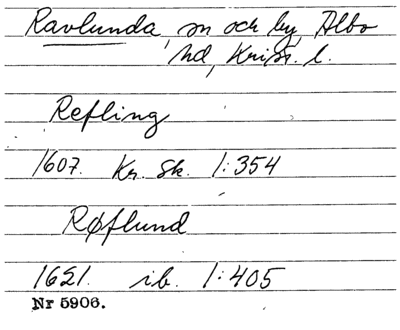 Ravlunda, sn och by, Albo
hd, Krist. l.
Refling
1607. Kr. Sk. 1:354
Røflund
1621. ib. 1:405
Nr 5906.